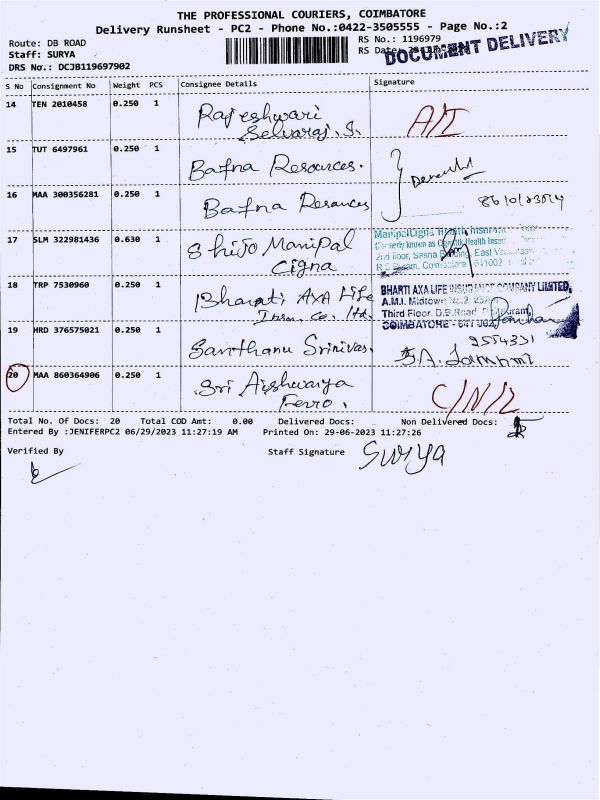 THE PROFESSIONAL COURIERS, COIMBATORE
Delivery Runsheet - PC2 - Phone No.:0422-3505555 - Page No.:2
Route: DB ROAD RS No.: 1196979
Staff: SURYA RS Date
DOCUMENT DELIVERY
DRS No.: DCJB119697902
S No Consignment No Weight PCS Consignee Details Signature
14 TEN 2010458 0.250 1 Rajeshwari
Selvaraj. S.
15 TUT 6497961 0.250 1 Bafna Resources.
16 MAA 300356281 0.250 1 Bafna Resources
17 SLM 322981436 0.630 1 Shijo Manipal
Cigna
ManipalCigna Health
(Formerly known as Health Insur
2nd floor, East
R.S. Puram, Coimbatore
18 TRP 7530960 0.250 1 Bharati AXA Life
Insu. Co. Ltd.
BHARTI AXA LIFE INSURANCE COMPANY LIMITED,
A.M.I. Midtown No.2
Third Floor D.B.Road
COIMBATORE - 641 002
19 HRD 376575021 0.250 1 Santhanu Srinivas.
2554331
20 MAA 860364906 0.250 1 Sri Aishwarya
Ferro.
Total No. Of Docs: 20 Total COD Amt: 0.00 Delivered Docs: Non Delivered Docs:
Entered By :JENIFERPC2 06/29/2023 11:27:19 AM Printed On: 29-06-2023 11:27:26
Verified By Staff Signature Surya